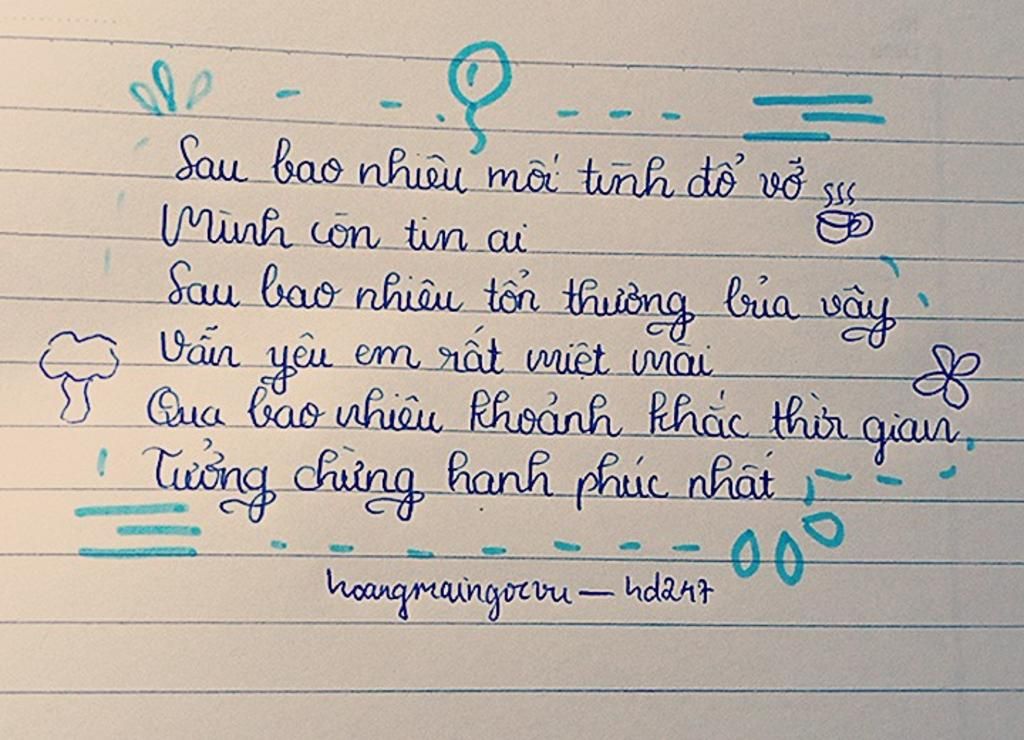 Sau bao nhiêu mối tình đổ vỡ
Mình còn tin ai
Sau bao nhiêu tổn thương bủa vây
Vẫn yêu em rất miệt mài
Qua bao nhiêu khoảnh khắc thời gian
Tưởng chừng hạnh phúc nhất
hoangmaingocvu — hd247